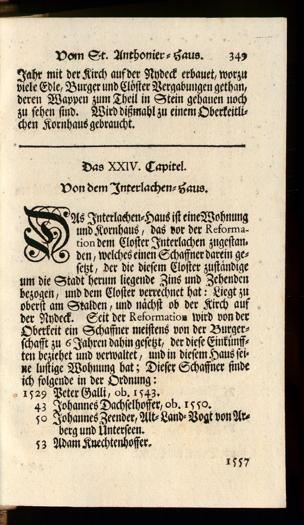 Vom St. Anthonier-Haus. 349
Jahr mit der Kirch auf der Nydeck erbauet, worzu
viele Edle, Burger und Clöster Vergabungen gethan,
deren Wappen zum Theil in Stein gehauen noch
zu sehen sind. Wird dißmahl zu einem Oberkeitli-
chen Kornhaus gebraucht.
Das XXIV. Capitel.
Von dem Interlachen-Haus.
DAs Interlachen-Haus ist eine Wohnung
und Kornhaus, das vor der Reforma-
tion dem Closter Interlachen zugestan-
den, welches einen Schaffner darein ge-
setzt, der die diesem Closter zuständige
um die Stadt herum liegende Zins und Zehenden
bezogen, und dem Closter verrechnet hat: Liegt zu
oberst am Stalden, und nächst ob der Kirch auf
der Nydeck. Seit der Reformation wird von der
Oberkeit ein Schaffner meistens von der Burger-
schafft zu 6 Jahren dahin gesetzt, der diese Einkünff-
ten beziehet und verwaltet, und in diesem Haus sei-
ne lustige Wohnung hat; Dieser Schaffner finde
ich folgende in der Ordnung:
1529 Peter Galli, ob. 1543.
43 Johannes Dachselhoffer, ob. 1550.
50 Johannes Zeender, Alt-Land-Vogt von Ar-
berg und Unterseen.
53 Adam Knechtenhoffer.
1557